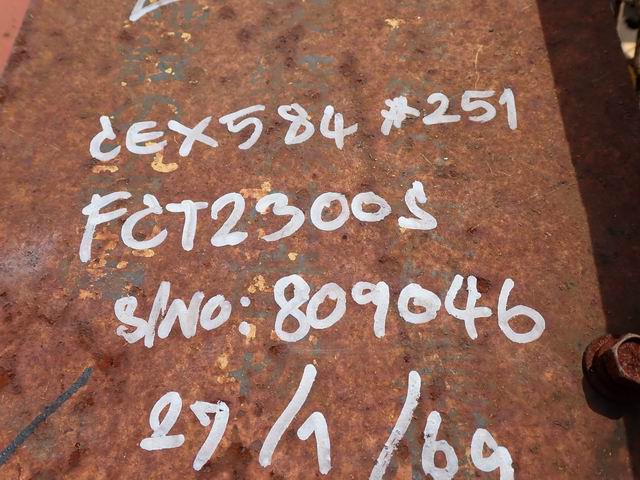 CEX584 #251
FCT2300S
S/NO: 809046
27/1/69